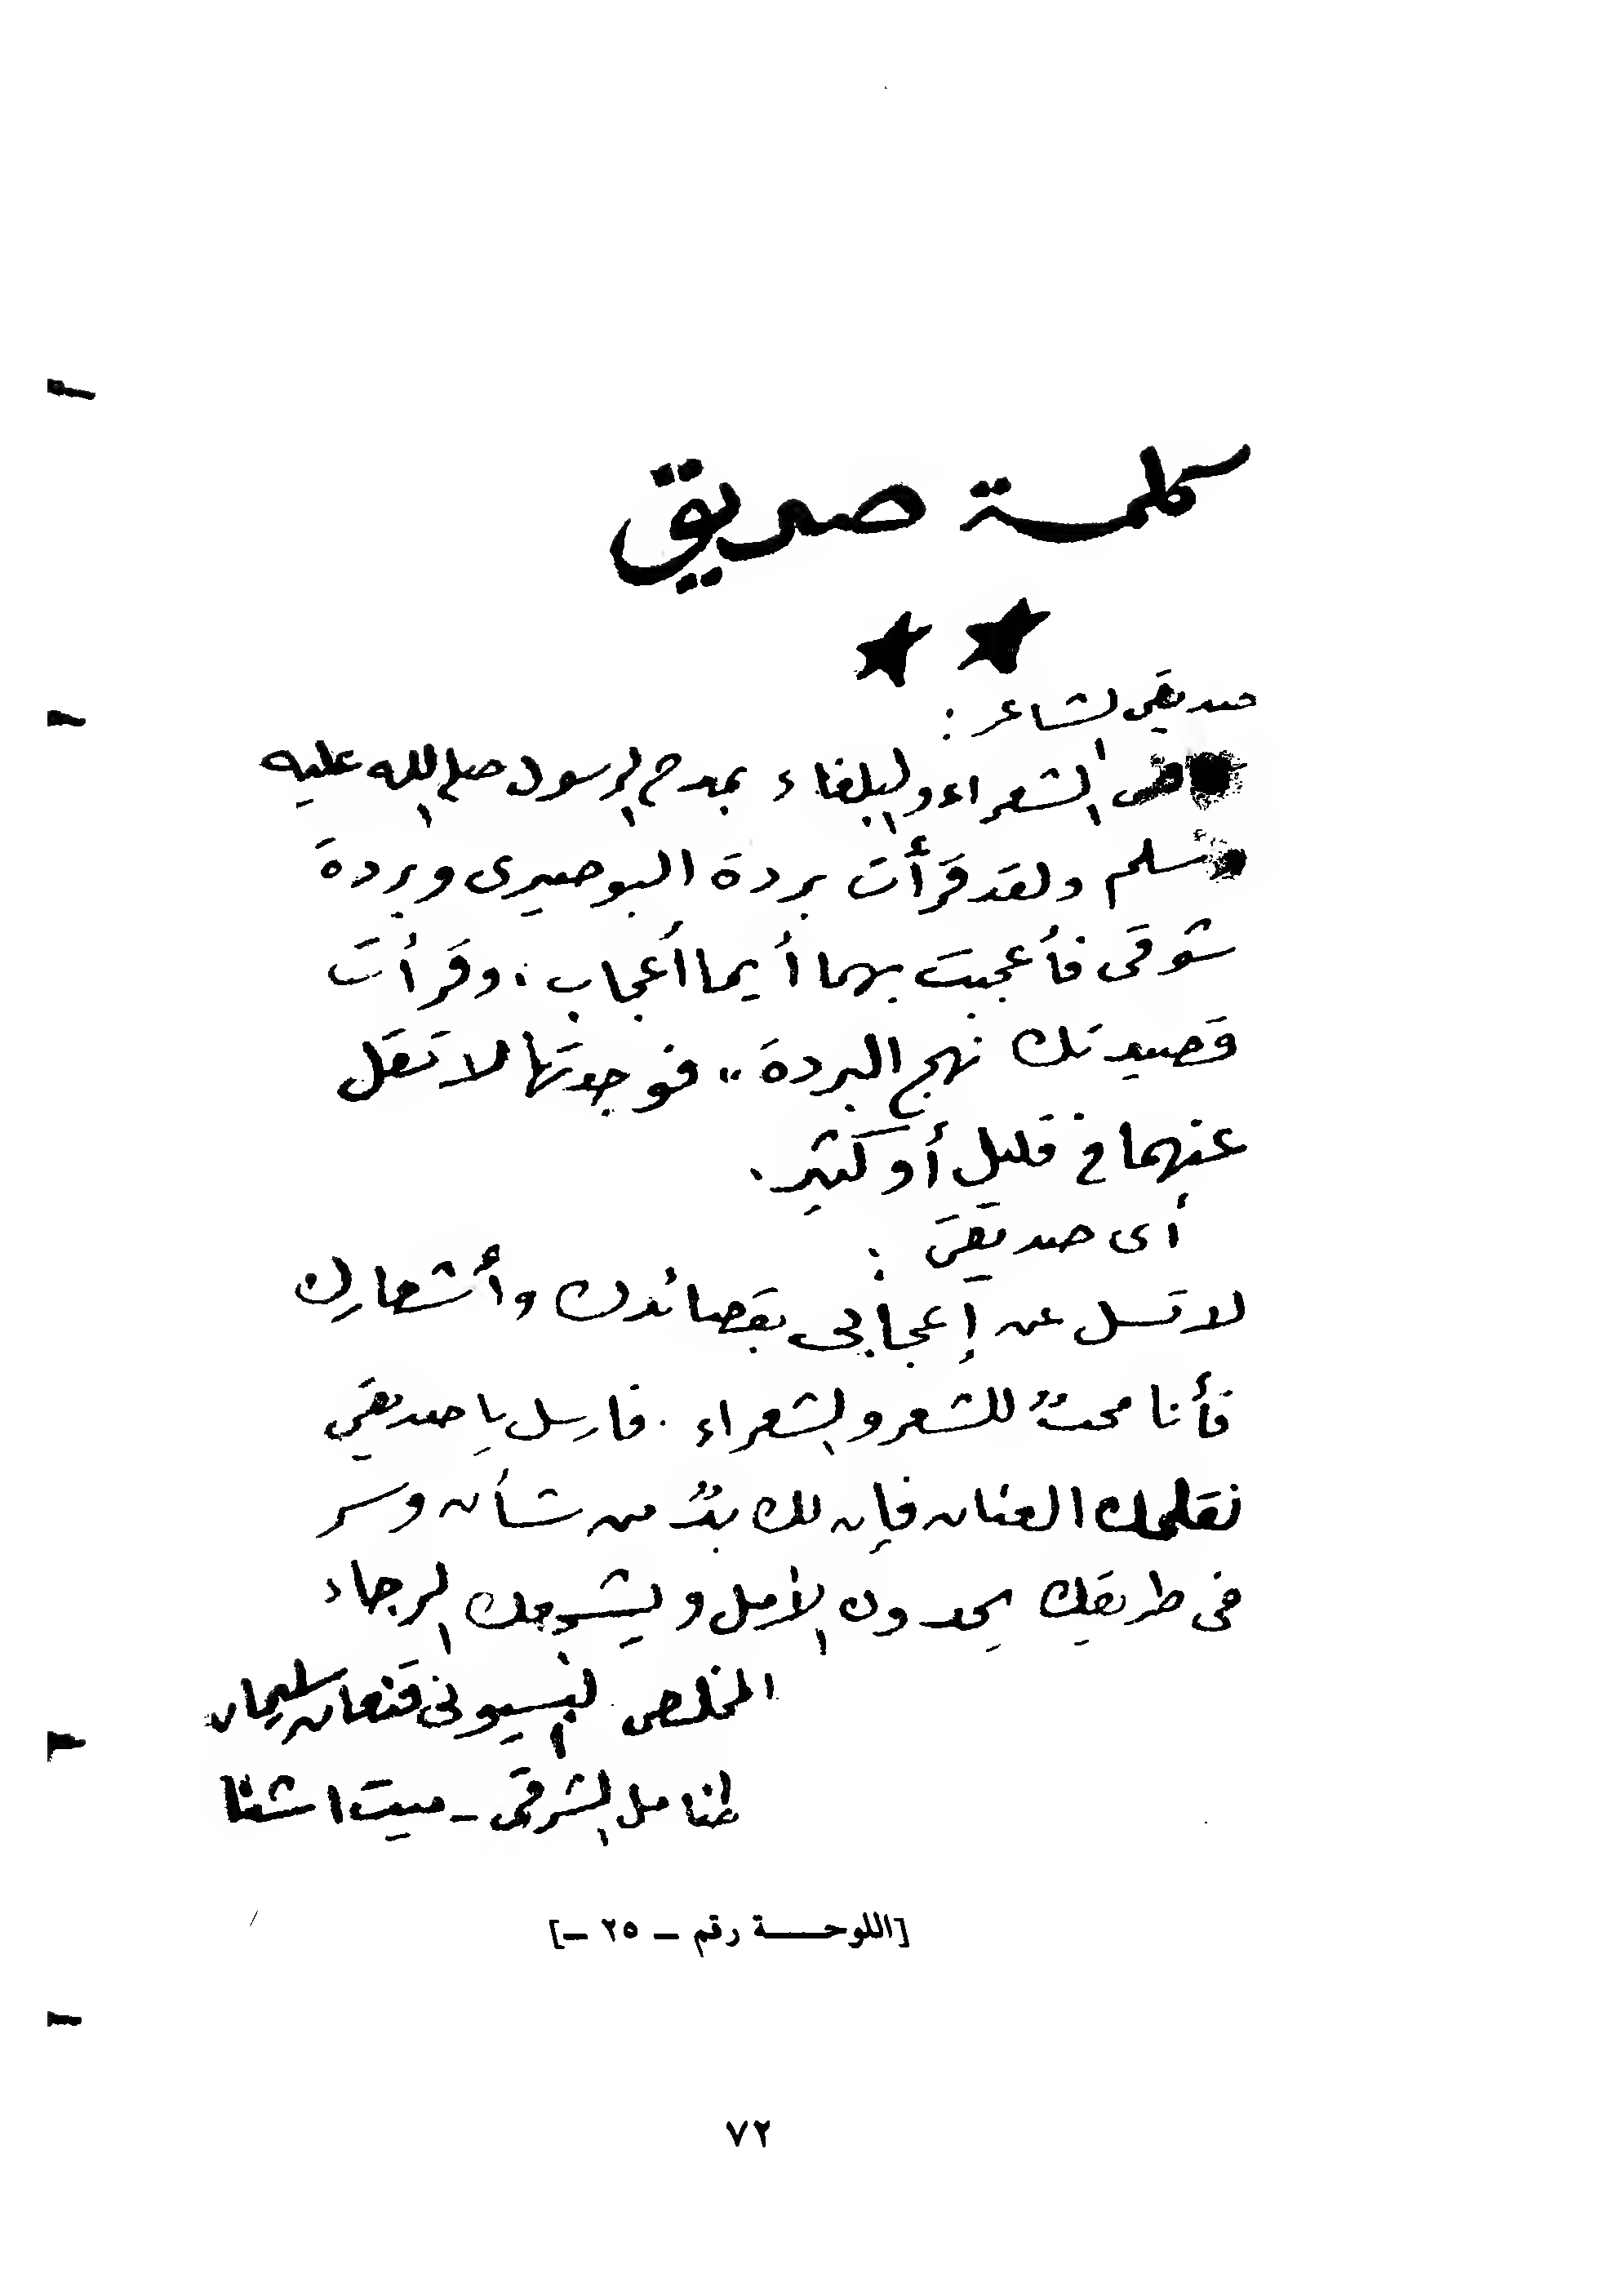 كلمة صديق
صديقى الشاعر :
الشعراء والبلغاء بمدح الرسول صلى الله عليه
وسلم ولقد قرأت بردة البوصيرى وبردة
شوقى فأعجبت بهما أيما أعجاب ، وقرأت
قصيدتك نهج البردة ،، فوجدتها لا تقل
عنهما فى قليل أو كثير .
أى صديقى :
لا تسل عن إعجابى بقصائدك وأشعارك
فأنا محبٌ للشعر والشعراء . فارسل يا صديقى
لقلمك العنان فإن لك بدٌ من شأن وسر
فى طريقك يحدوك الأمل ويشجعك الرجاء
المخلص البسيونى قنعان سليمان
طنامل الشرقى - ميت اشنا
[اللوحــة رقم - ٢٥ -]
٧٢